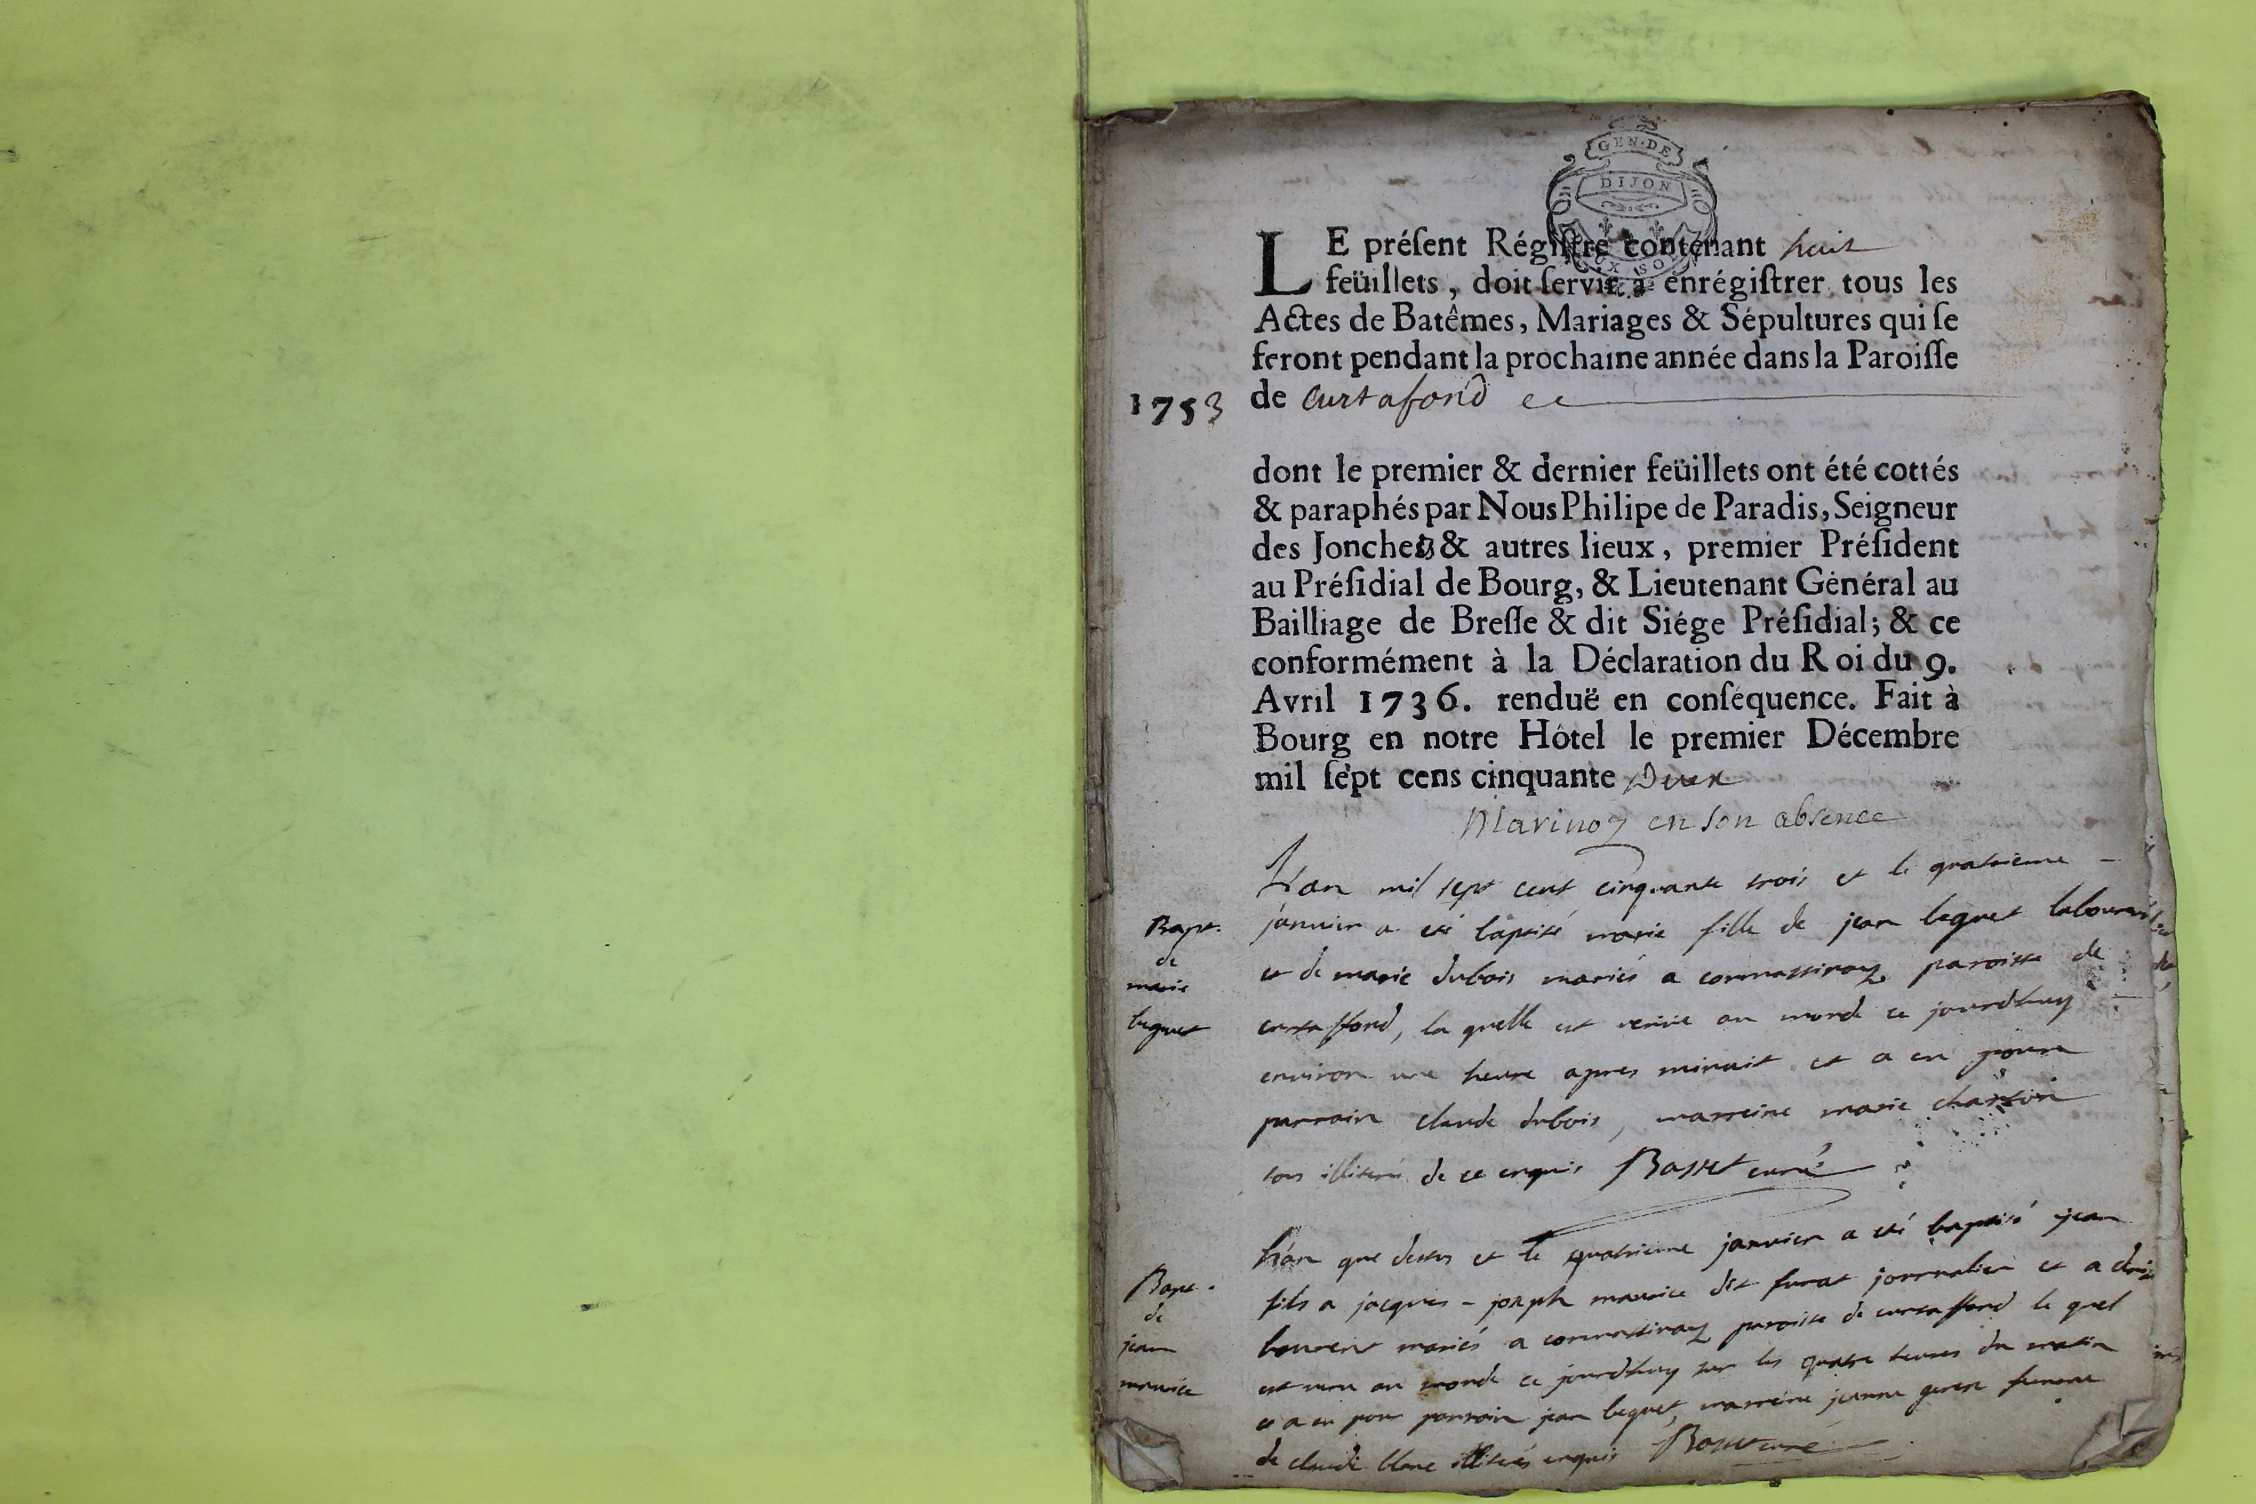 GEN·DE
DIJON
UX SOL
LE préſent Régiſtre contenant huit
feüillets, doit ſervir a enrégiſtrer tous les
Actes de Batêmes, Mariages & Sépultures qui ſe
feront pendant la prochaine année dans la Paroiſſe
1753 de Curtafond
dont le premier & dernier feüillets ont été cottés
& paraphés par Nous Philipe de Paradis, Seigneur
des Jonches & autres lieux, premier Préſident
au Préſidial de Bourg, & Lieutenant Général au
Bailliage de Breſſe & dit Siége Préſidial; & ce
conformément à la Déclaration du Roi du 9.
Avril 1736. renduë en conſéquence. Fait à
Bourg en notre Hôtel le premier Décembre
mil ſept cens cinquante Deux
en son absence
L'an mil sept cent cinquante trois et le quatrieme
Bapt.
de
marie
beguet
janvier a eté baptisé marie fille de jean beguet
et de marie dubois mariés a paroisse de
curtaffond, la quelle est venue au monde ce jourdhuy
environ une heure apres minuit et a eu pour
parrain claude dubois, marreine marie
tous de ce enquis Basset curé
Bapt.
de
jean
maurice
L'an que dessus et le quatrieme janvier a eté baptisé jean
fils a jacques-joseph maurice dit furat journalier et a
mariés a paroisse de curtaffond le quel
est venu au monde ce jourdhuy sur les quatre heures du matin
et a eu pour parrain jean beguet, marreine jeanne femme
de claude blanc enquis Basset curé